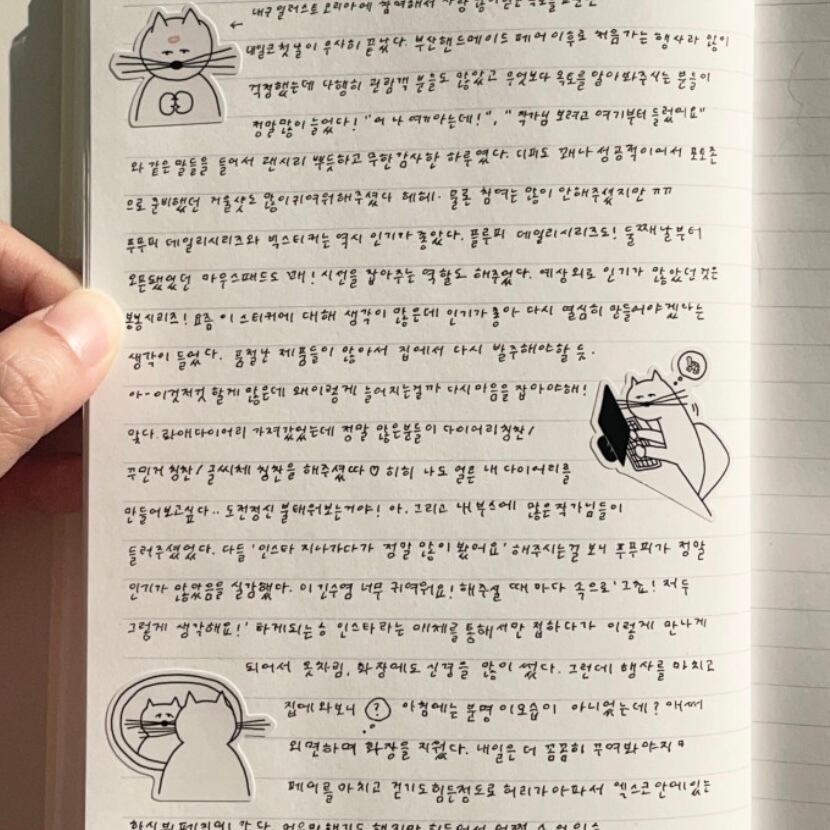 대구 일러스트 코리아에 참여해서
네임코 첫날이 무사히 끝났다. 부산핸드메이드 페어 이후로 처음가는 행사라 많이
걱정했는데 다행히 관람객 분들도 많았고 무엇보다 옥토를 알아봐주시는 분들이
정말많이 늘었다! "어 나 여기아는데!", "작가님 보려고 여기부터 들렀어요"
와 같은 말들을 들어서 괜시리 뿌듯하고 무한감사한 하루였다. 디피도 꽤나 성공적이어서 포토존
으로 준비했던 거울샷도 많이귀여워해주셨다 헤헤. 물론 참여는 많이 안해주셨지만 ㄲㄲ
푸푸피 데일리시리즈와 빅스티커는 역시 인기가 좋았다. 플루피 데일리시리즈도! 둘째날부터
오픈됐었던 마우스패드도 꽤! 시선을 잡아주는 역할도 해주었다. 예상외로 인기가 많았던것은
봉봉시리즈! 요즘 이 스티커에 대해 생각이 많은데 인기가 좋아 다시 열심히 만들어야겠다는
생각이 들었다. 품절난 제품들이 많아서 집에서 다시 발주해야할 듯.
아-이것저것 할게 많은데 왜이렇게 늘어지는걸까 다시마음을 잡아야해!
맞다. 라애다이어리 가져갔었는데 정말 많은분들이 다이어리칭찬!
꾸민거 칭찬! 글씨체 칭찬을 해주셨따♡ 히히 나도 얼른 내 다이어리를
만들어보고싶다.. 도전정신 불태워보는거야! 아. 그리고 내 부스에 많은작가님들이
들러주셨었다. 다들 '인스타 지나가다가 정말 많이 봤어요' 해주시는걸 보니 푸푸피가 정말
인기가 많았음을 실감했다. 이 긴수염 너무 귀여워요! 해주실 때 마다 속으로 '그쵸! 저두
그렇게 생각해요!' 하게되는ㅎ 인스타라는 매체를 통해서만 접하다가 이렇게 만나게
되어서 옷차림, 화장에도 신경을 많이 썼다. 그런데 행사를 마치고
집에 와보니 ? 아침에는 분명 이모습이 아니었는데? 애써
외면하며 화장을 지웠다. 내일은 더 꼼꼼히 꾸며봐야지
페어를 마치고 걷기도 힘든정도로 허리가 아파서 엑스코 안에 있는